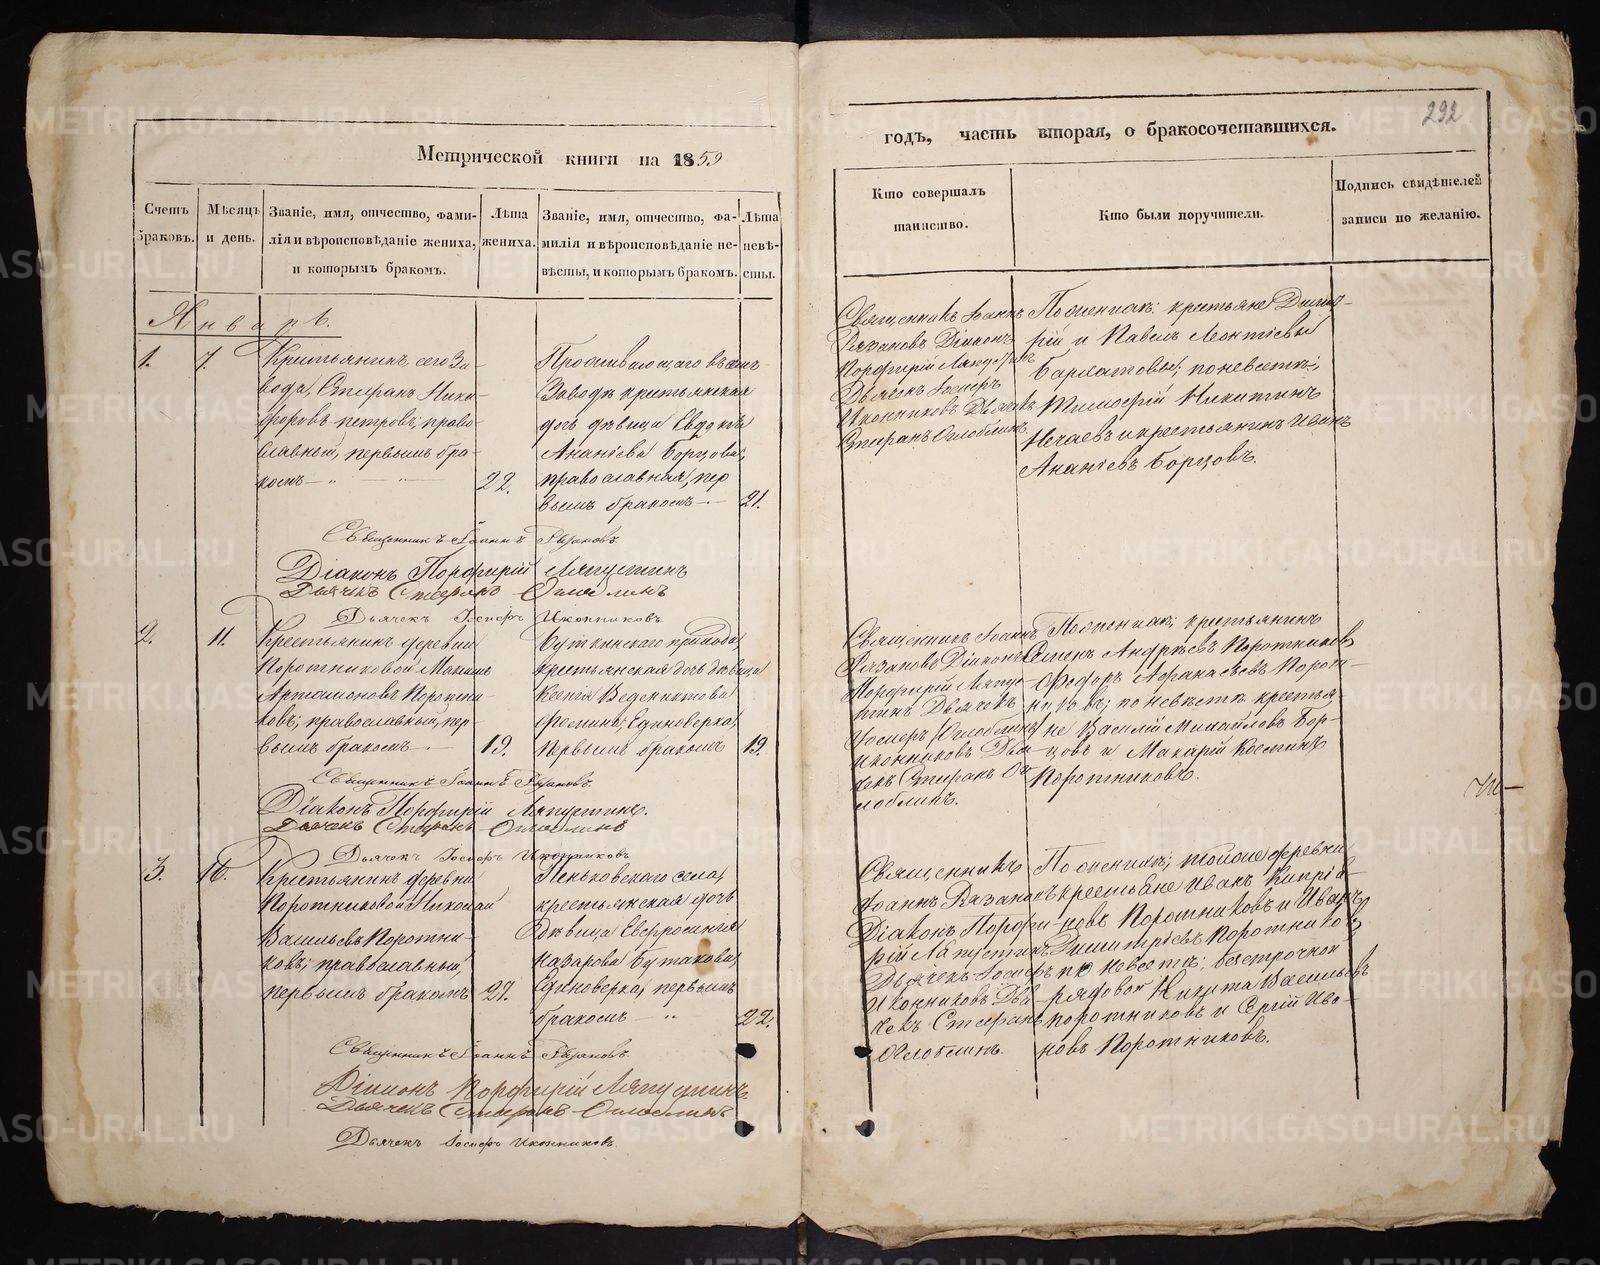 292
Метрической книги на 1859
годъ, часть вторая, о бракосочетавшихся.
Счетъ браковъ.
Мѣсяцъ и день.
Званіе, имя, отчество, фами-
лія и вѣроисповѣданіе жениха,
и которымъ бракомъ.
Лѣта
жениха.
Званіе, имя, отчество, фа-
милія и вѣроисповѣданіе не-
вѣсты, и которымъ бракомъ.
Лѣта
невѣ-
сты.
Кто совершалъ
таинство.
Кто были поручители.
Подпись свидѣтелей
записи по желанію.
Январь.
1.
7.
Крестьянинъ сего За-
вода, Стефанъ Ники-
форовъ Петровъ, право-
славный, первымъ бра-
комъ
22.
Проживающаго въ семъ
Заводѣ крестьянская
дочь дѣвица Евдокія
Ананіева Борцова,
православная, пер
вымъ бракомъ
21.
Священникъ Іоаннъ
Рязановъ Діаконъ
Порфирій Ляпустинъ
Дьячекъ Іосифъ
Иконниковъ Дьячекъ
Стефанъ Оглоблинъ
По женихѣ: крестьяне Дмит-
рій и Павелъ Леонтіевы
Бархатовы; по невѣстѣ;
Тимофей Никитинъ
Нечаевъ и крестьянинъ Иванъ
Ананіевъ Борцовъ.
Священникъ Іоаннъ Рязановъ
Діаконъ Порфирій Ляпустинъ
Дьячекъ Стефанъ Оглоблинъ
Дьячекъ Іосифъ Иконниковъ.
2.
11.
Крестьянинъ деревни
Поротниковой Максимъ
Артамоновъ Поротни-
ковъ; православный, пер-
вымъ бракомъ
19.
Буткинскаго прихода,
крестьянская дочь дѣвица
Ксенія Ведениктова
Фомина, Единоверка,
первымъ бракомъ
19.
Священникъ Іоаннъ
Рязановъ Діаконъ
Порфирій Ляпус-
тинъ Дьячекъ
Іосифъ Оглоблинъ
Иконниковъ Дья-
чекъ Стефанъ Ог
лоблинъ.
По женихѣ; крестьянинъ
Семенъ Андрѣевъ Поротниковъ,
Федоръ Афанасьевъ Порот-
никовъ; по невѣстѣ крестья
не Василій Михайловъ Бор-
цовъ и Макарій Костинъ
Поротниковъ.
Священникъ Іоаннъ Рязановъ.
Діаконъ Порфирій Ляпустинъ.
Дьячекъ Стефанъ Оглоблинъ
Дьячекъ Іосифъ Иконниковъ
3.
16.
Крестьянинъ деревни
Поротниковой Николай
Васильевъ Поротни-
ковъ; православный,
первымъ бракомъ
27.
Пеньковскаго села,
крестьянская дочь
дѣвица Евфросинія
Назарова Бутакова,
Единоверка, первымъ
бракомъ
22.
Священникъ
Іоаннъ Рязановъ
Діаконъ Порфи-
рій Ляпустинъ
Дьячекъ Іосифъ
Иконниковъ Дья-
чекъ Стефанъ
Оглоблинъ.
По женихѣ; тойже деревни
крестьяне Иванъ Кипрія-
новъ Поротниковъ и Иванъ
Димитріевъ Поротниковъ,
по невѣстѣ; безсрочной
рядовой Никита Васильевъ
Поротниковъ и Сергій Ива-
новъ Поротниковъ.
Священникъ Іоаннъ Рязановъ.
Діаконъ Порфирій Ляпустинъ
Дьячекъ Стефанъ Оглоблинъ
Дьячекъ Іосифъ Иконниковъ
METRIKI.GASO-URAL.RU